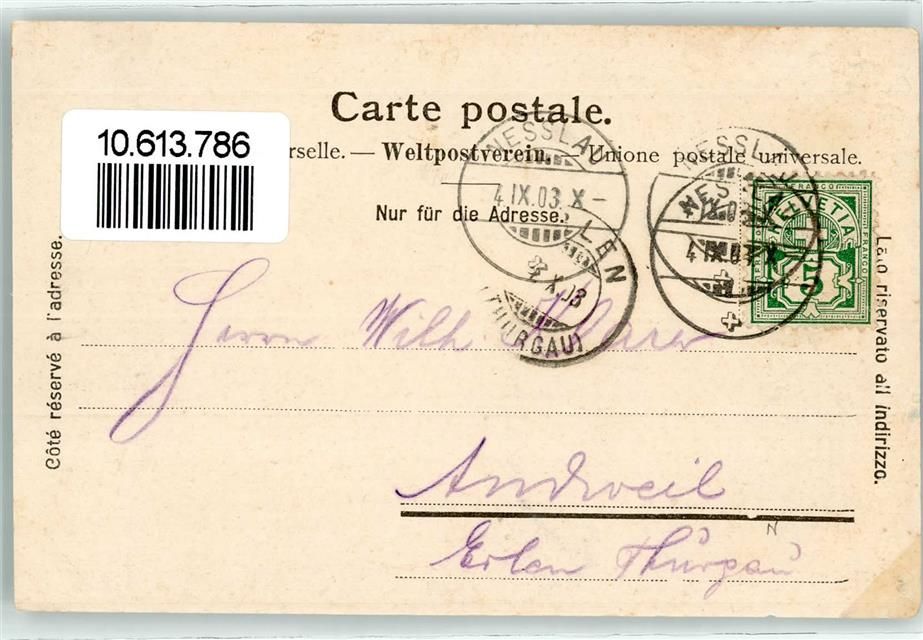 Carte postale.
10.613.786
rselle. — Weltpostverein. — Unione postale universale.
Nur für die Adresse.
NESSLAU
4 IX. 03. X –
NESSLAU
NESSLAU
4 IX. 03. X
FRANCO
HELVETIA
FRANCO
5
LEN
X 03
(THURGAU)
Côté réservé à l'adresse.
Lato riservato all indirizzo.
Herrn Wilh
Andweil
Erlen Thurgau
N